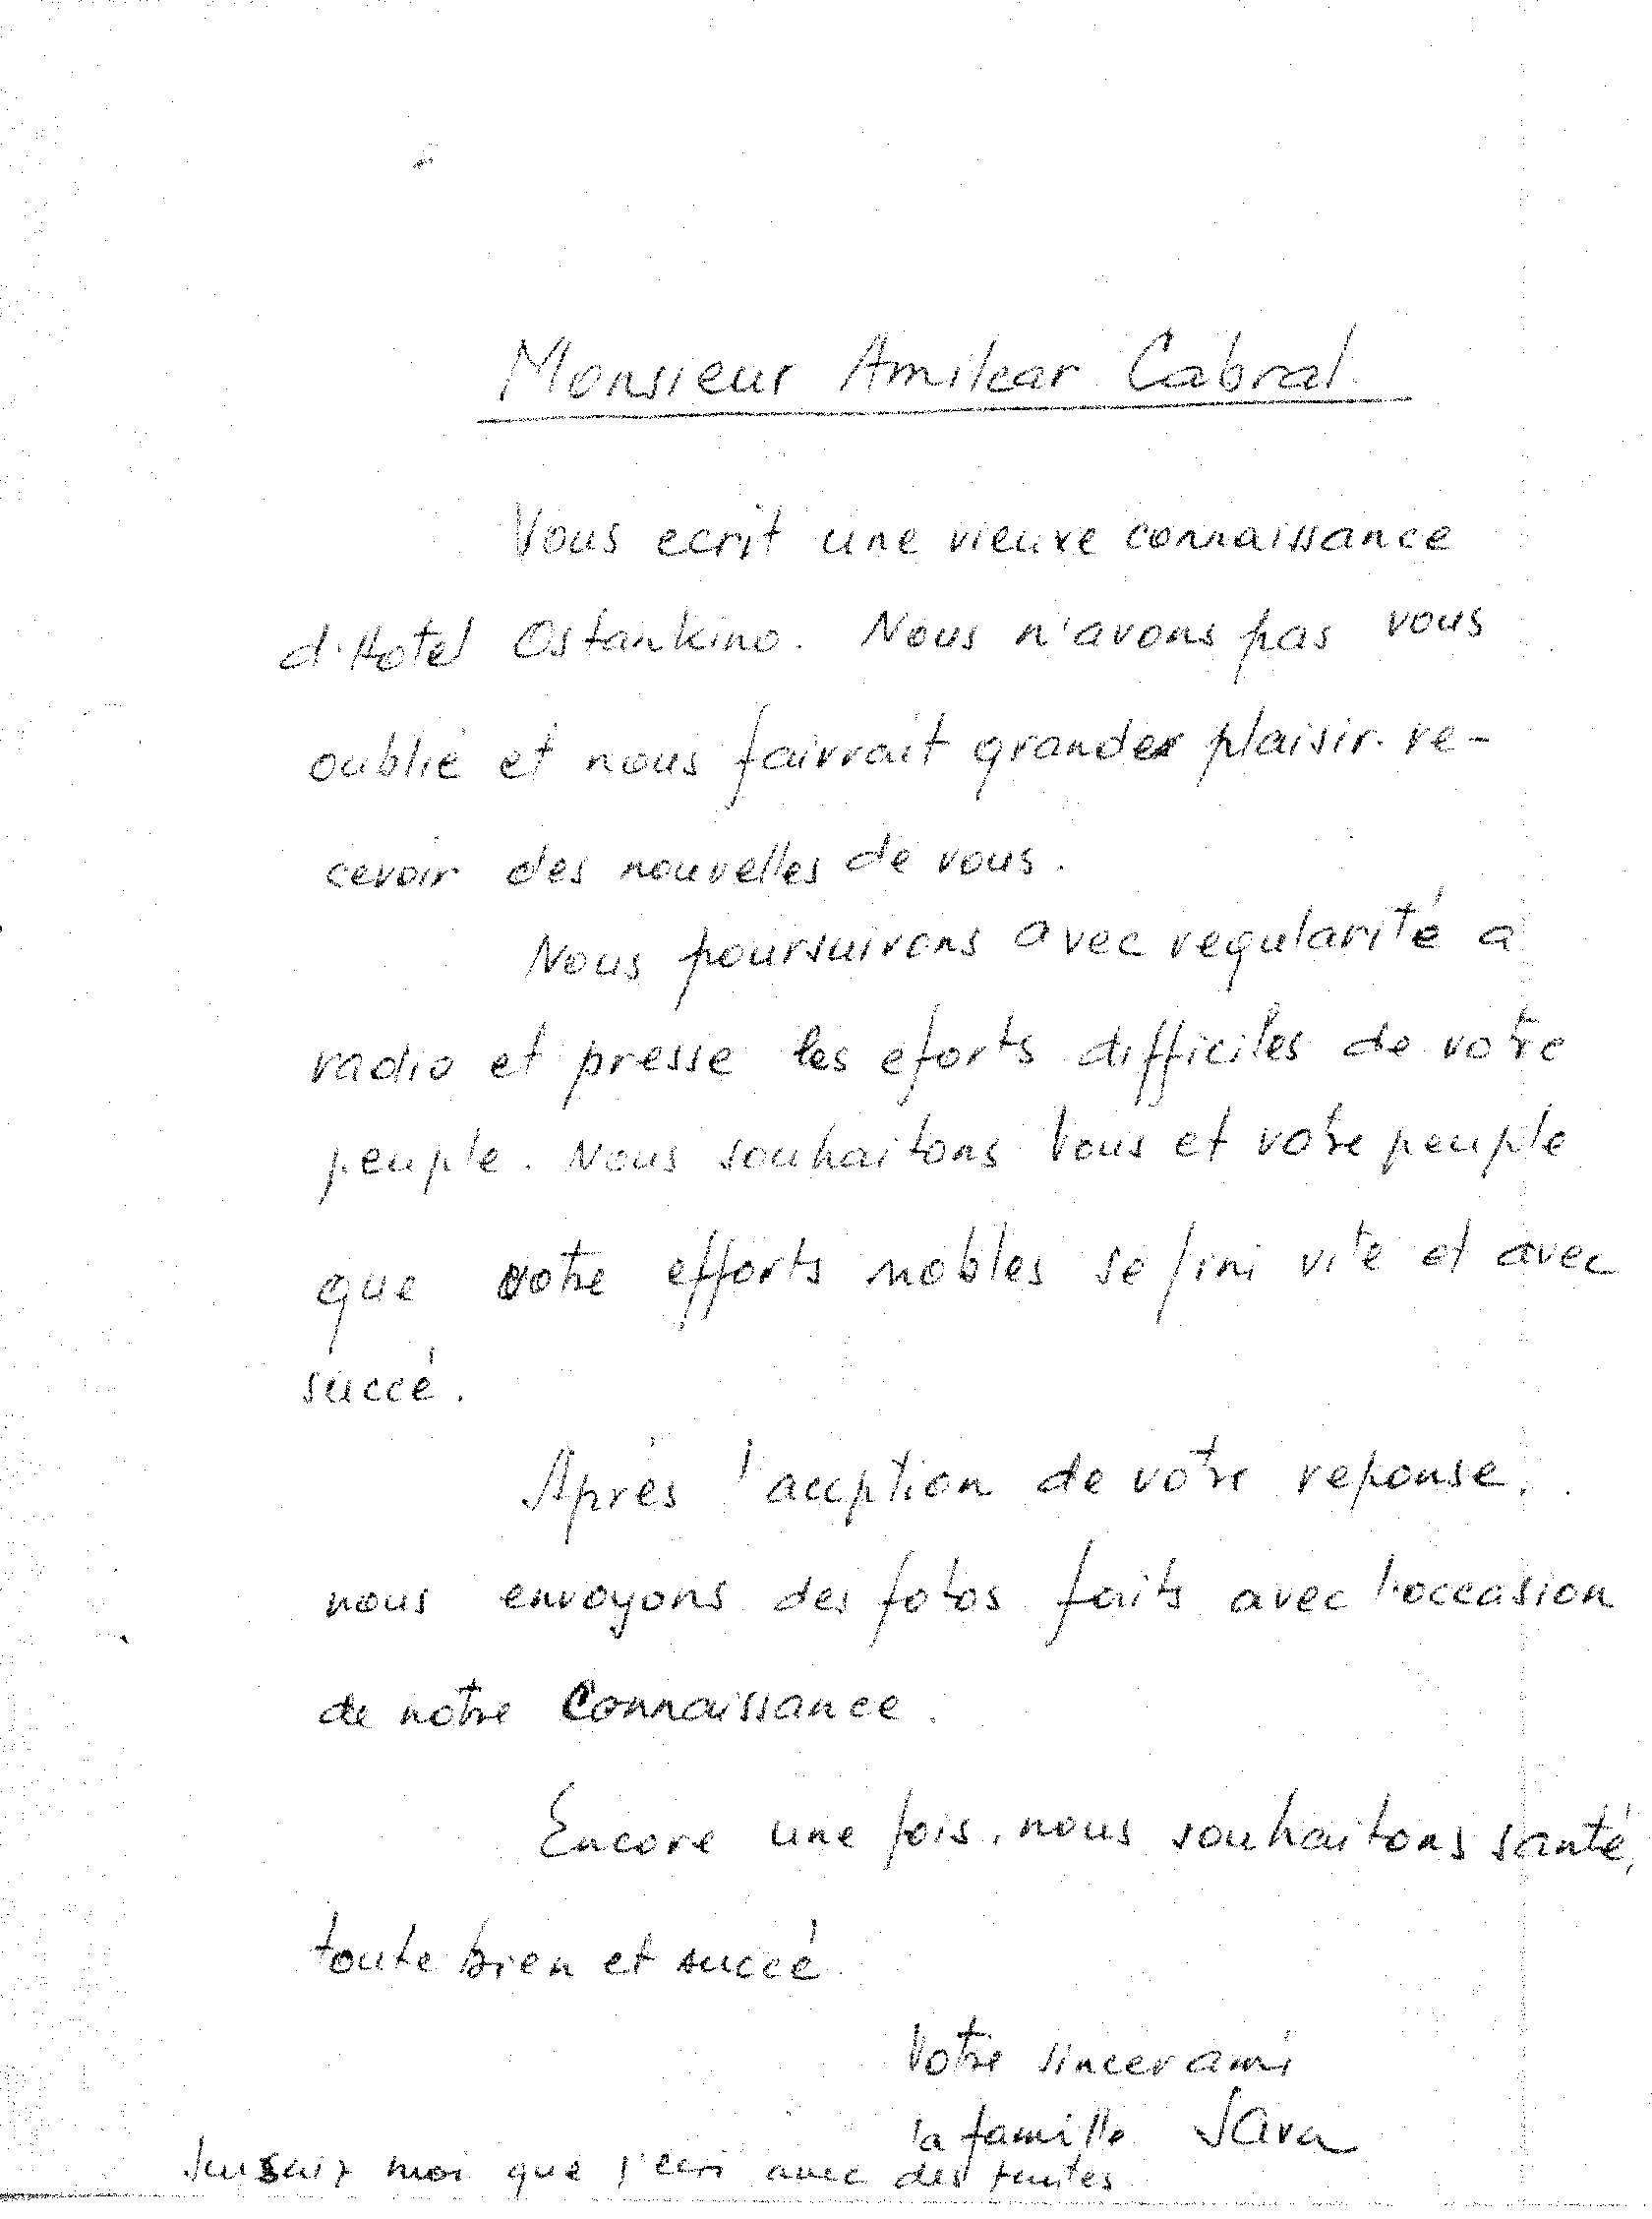 Monsieur Amilcar Cabral.
Vous ecrit une vieuxe connaissance
d'Hotel Ostankino. Nous n'avons pas vous
oublié et nous fairrait grande plaisir re-
cevoir des nouvelles de vous.
Nous poursuivons avec regularité a
radio et presse les eforts difficiles de votre
peuple. Nous souhaitons Vous et votre peuple
que votre efforts nobles se fini vite et avec
succé.
Après l'acception de votre reponse,
nous envoyons des fotos faits avec l'occasion
de notre Connaissance.
Encore une fois, nous souhaitons santé,
toute bien et succé
Votre sincer ami
la famille Sava
moi que j'ecri avec des